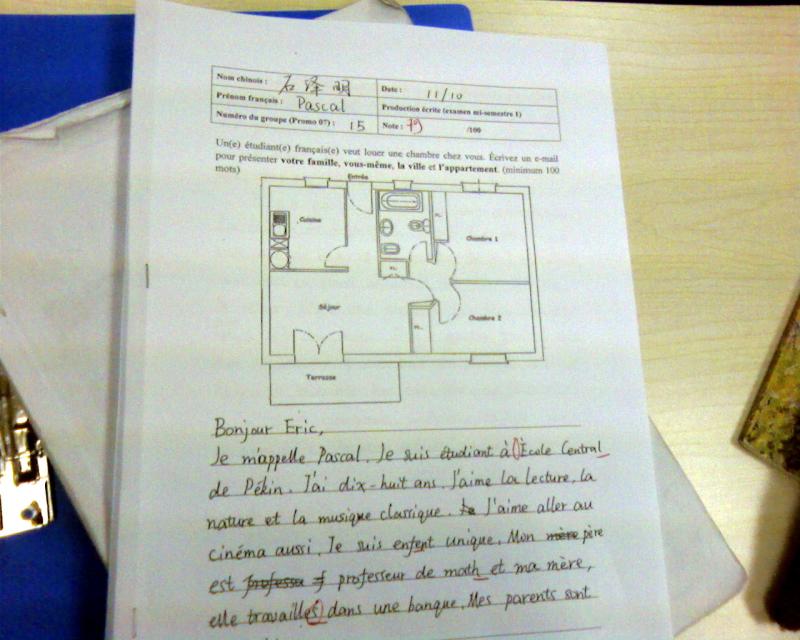 Nom chinois : 石泽明
Date : 11/10
Prénom français : Pascal
Production écrite (examen mi-semestre 1)
Numéro du groupe (Promo 07) : 15
Note : 79 /100
Un(e) étudiant(e) français(e) veut louer une chambre chez vous. Écrivez un e-mail
pour présenter votre famille, vous-même, la ville et l'appartement. (minimum 100
mots)
Entrée
Cuisine
PL.
Chambre 1
PL.
Séjour
PL.
Chambre 2
Terrasse
Bonjour Eric,
Je m'appelle Pascal. Je suis étudiant à École Central
de Pékin. J'ai dix-huit ans. J'aime la lecture, la
nature et la musique classique. J'aime aller au
cinéma aussi. Je suis enfent unique. Mon mère père
est professeu f professeur de math et ma mère,
elle travailles dans une banque. Mes parents sont